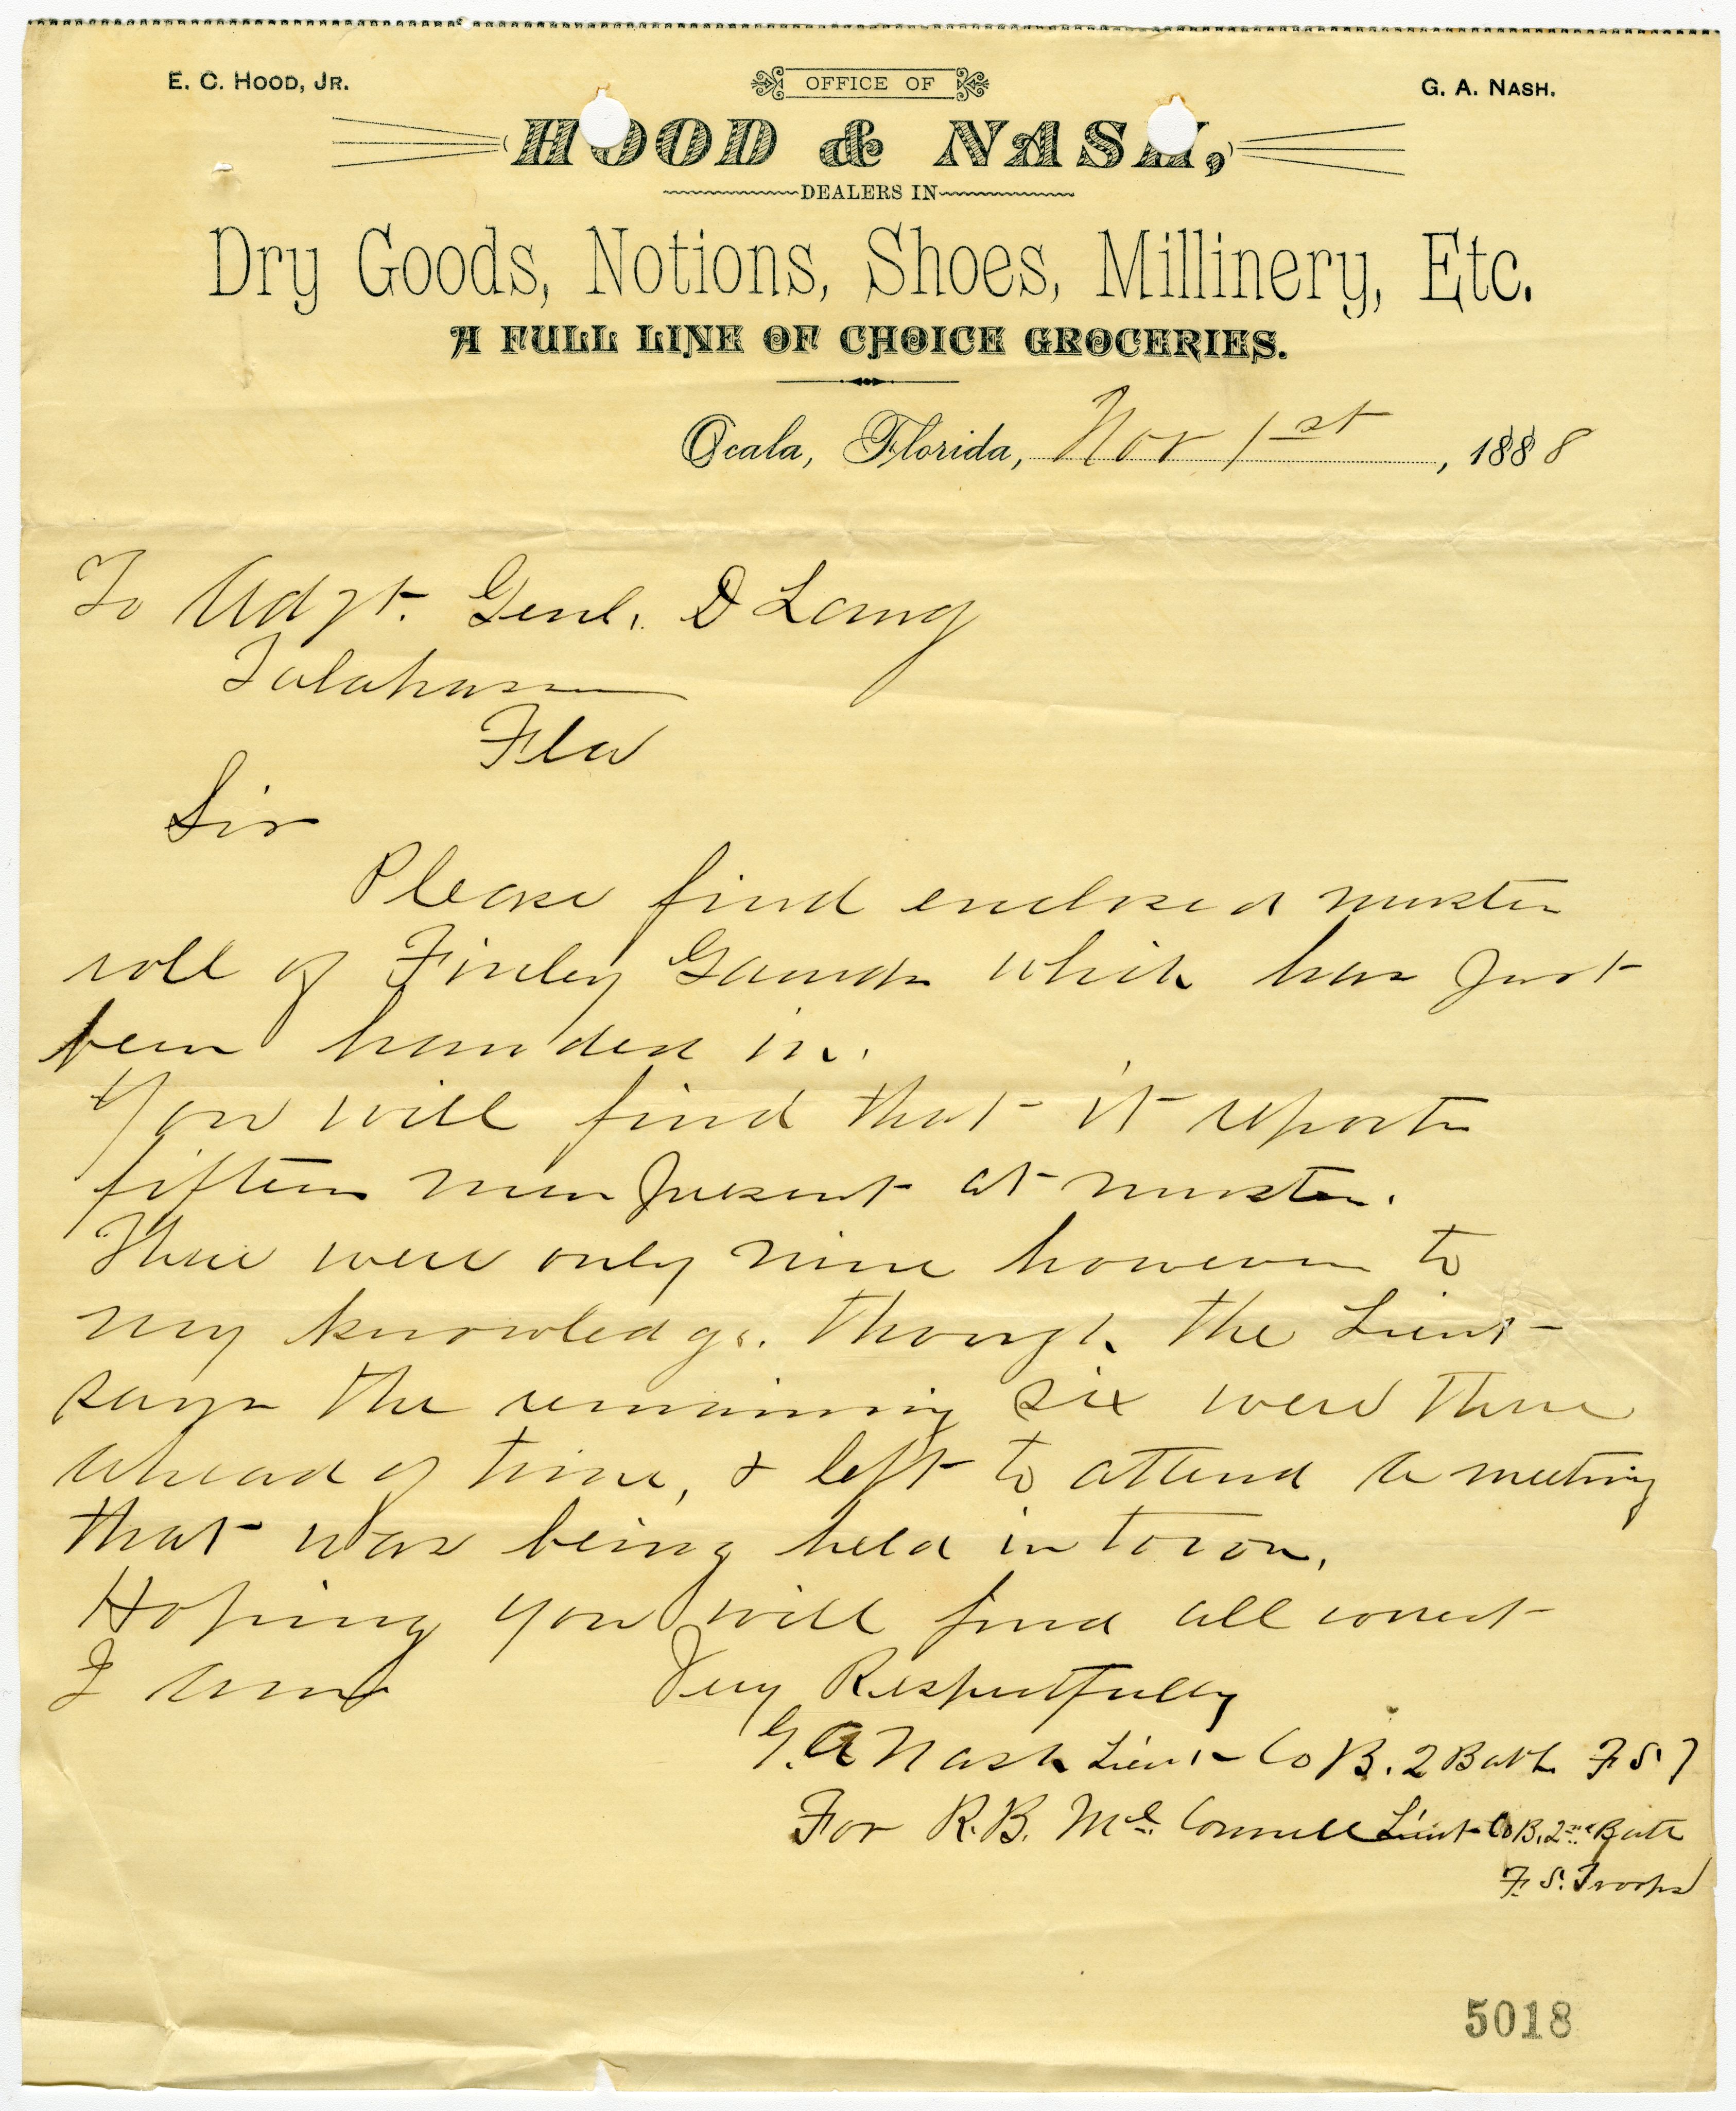 E. C. HOOD, JR.
OFFICE OF
G. A. NASH.
HOOD & NASH,
DEALERS IN
Dry Goods, Notions, Shoes, Millinery, Etc.
A FULL LINE OF CHOICE GROCERIES.
Ocala, Florida, Nov 1st, 1888
To Adgt. Genl. D Lang
Talahassee
Fla
Sir
Please find enclosed muster
roll of Finley Gaurds which has Just
been handed in.
You will find that it reports
fifteen men present at muster.
There were only nine however to
my knowledge. though the Lieut
says the remaining six were there
ahead of time, & left to attend a meeting
that was being held in town.
Hoping you will find all correct
I am Very Respectfully
G. A Nash Lieut Co B. 2 Batt. F S T
For R. B. Mc. Connell Lieut Co B. 2nd Batt
F. S. Troops
5018